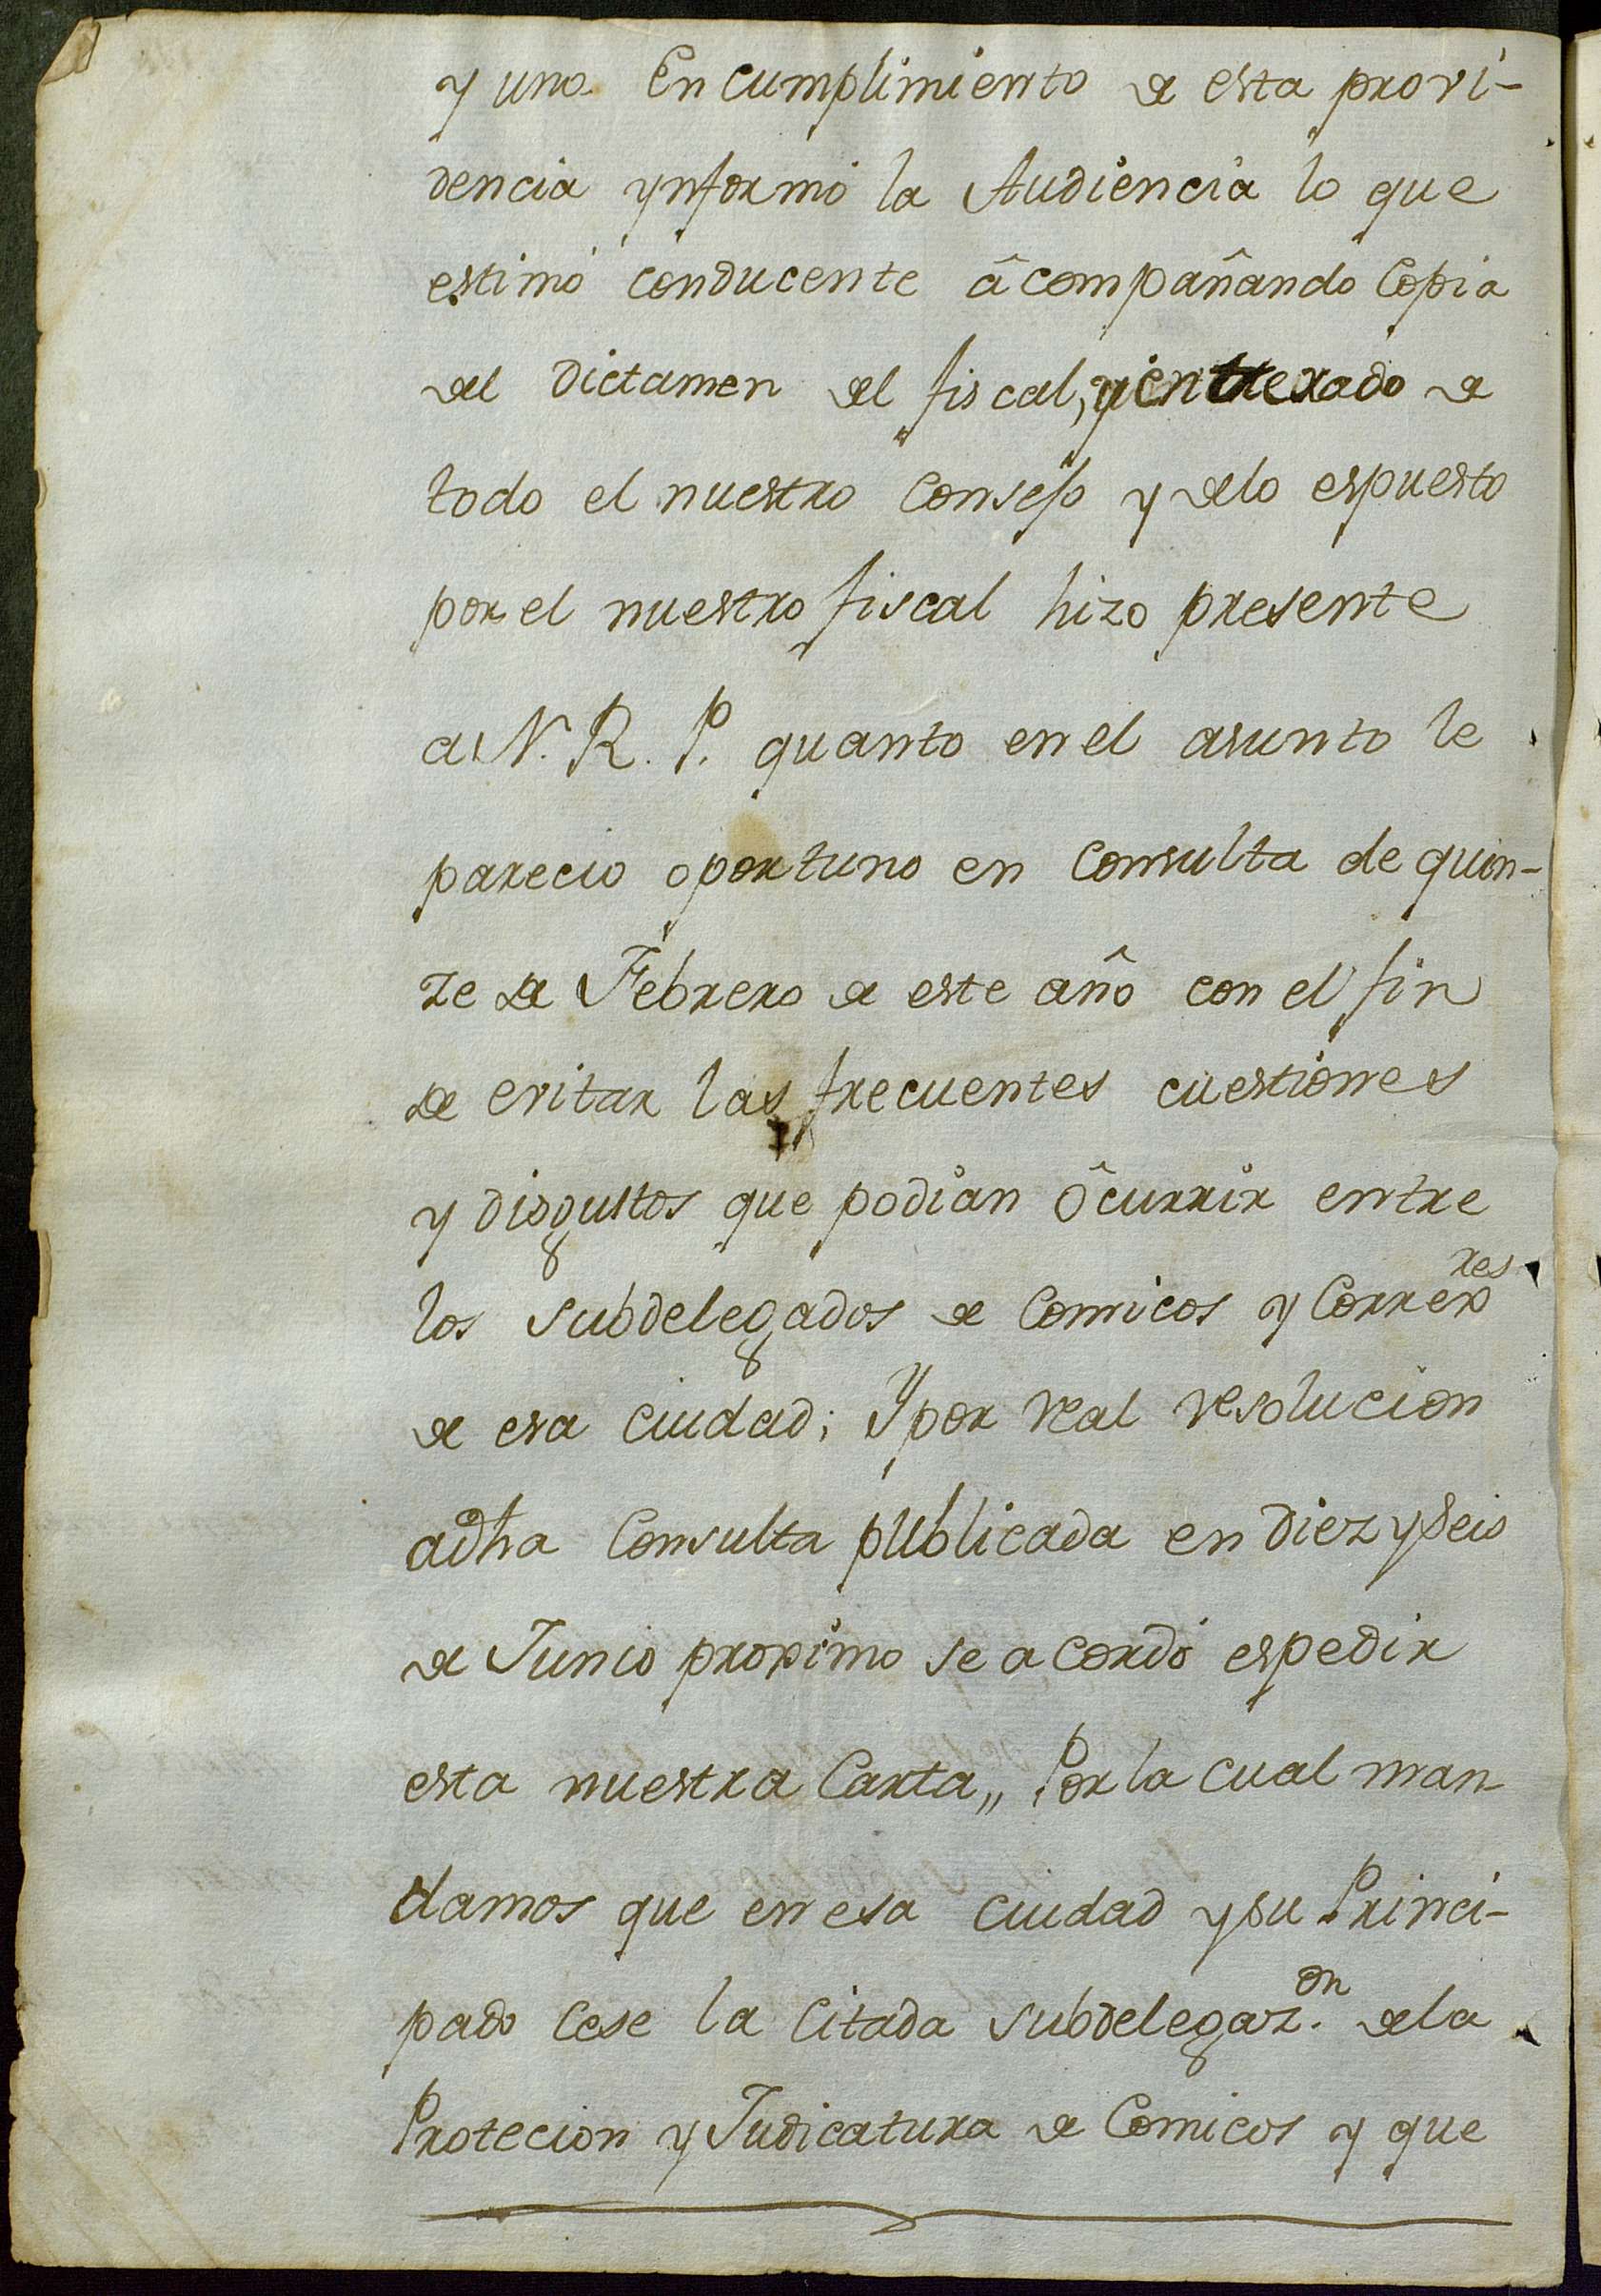 y uno. En cumplimiento de esta provi-
dencia ynformó la Audiencia lo que
estimó conducente âcompañando Copia
del dictamen del fiscal, y enterado de
todo el nuestro Consejo y delo espuesto
por el nuestro fiscal hizo presente
a N. R. P. quanto en el asunto le
parecio oportuno en Consulta de quin-
ze de Febrero de este año con el fin
de evitar las frecuentes cuestiones
y disgustos que podian ôcurrir entre
los Subdelegados de Comicos y Correxres
de esa ciudad; Y por real resolucion
adha Consulta publicada en diez y seis
de Junio proximo se acordó espedir
esta nuestra Carta,, Por la cual man-
damos que en esa ciudad y su Princi-
pado cese la citada Subdelegazon. dela
Protecion y Judicatura de Comicos y que